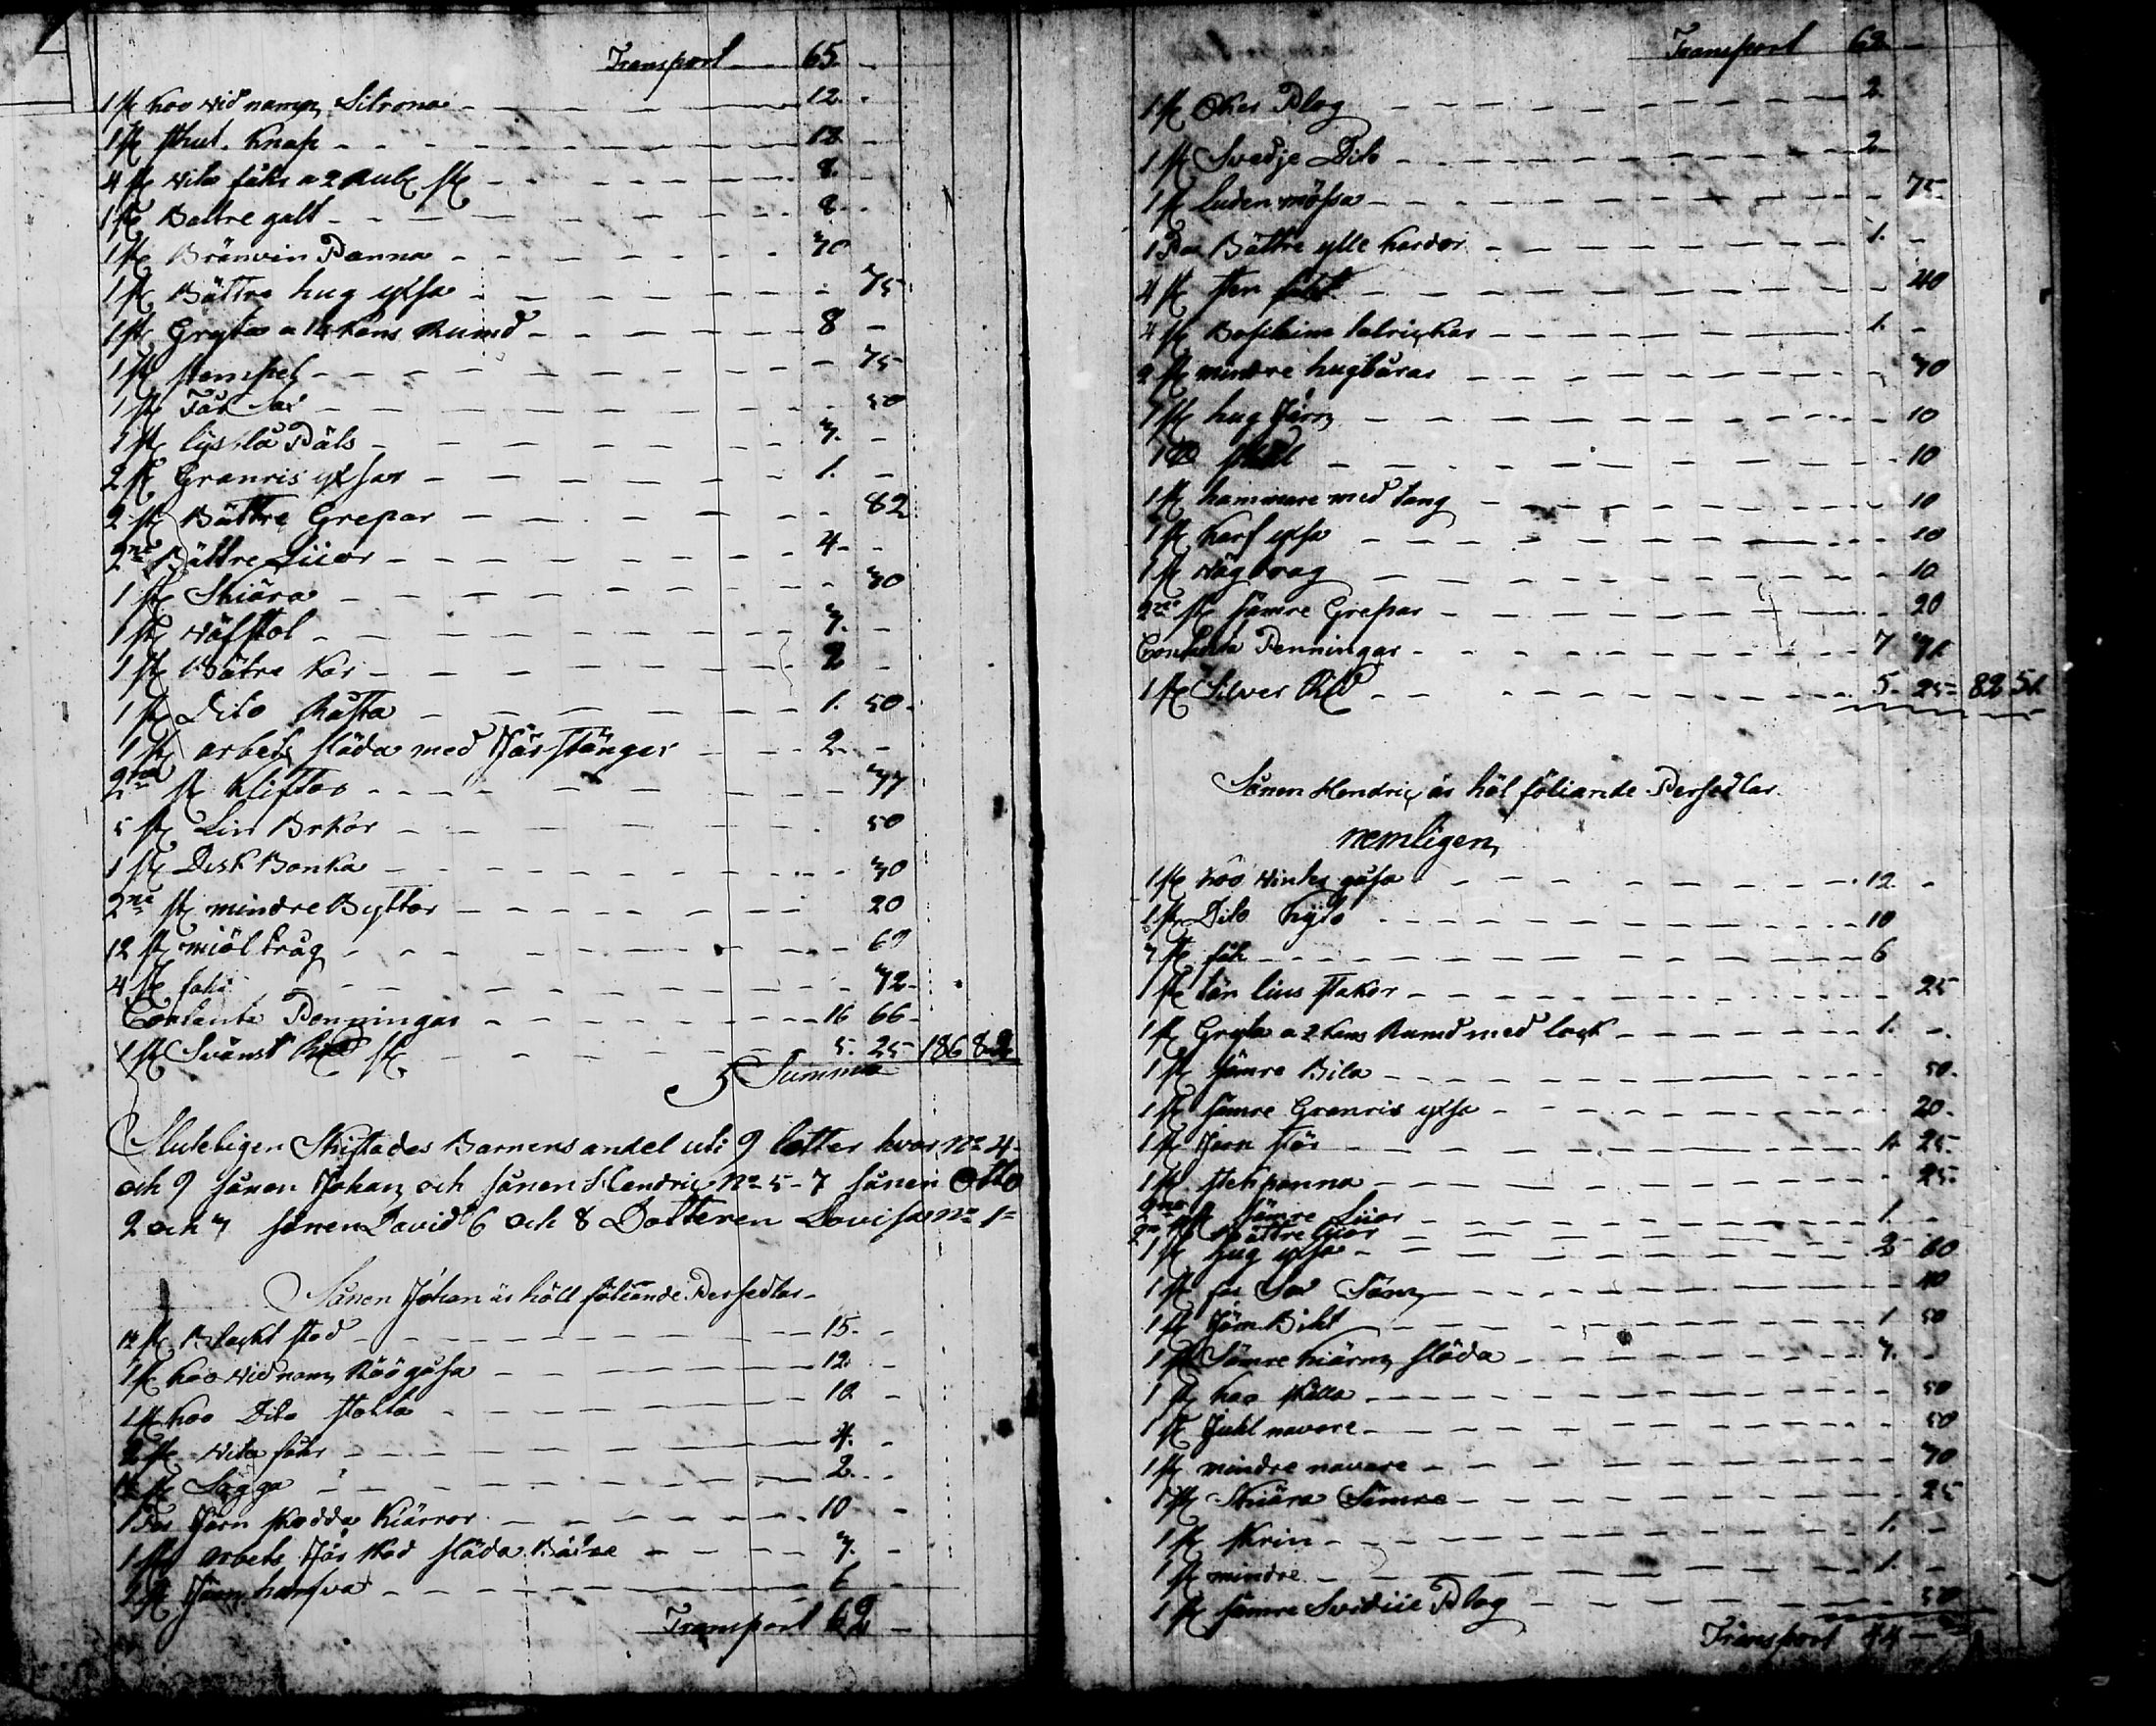 Transport 65 -
1 st koo vid namn Sitrona 12 -
1 st stut Knap 12 -
4 st vita fåhr a 2 Rubl st 8 -
1 st Battre galt 8 -
1 st Bränvin Panna 30
1 st Bättre hug yxsa - 75
1 st Gryta a 14 kans Rumd 8 -
1 st stempel - 75
1 st Får sax - 50
1 st Päls 3 -
2 st Granris yxsar 1 -
2 st Bättre Grepar - 82
2ne Bättre Liior 4 -
1 st Skiära - 30
1 st Väfstol 3 -
1 st Bätre Kar 2 -
1 st Dito 1 50
1 st arbets släda med Jär stänger 2 -
2ne st Kliftor 37
5 st Lin Brkor 50
1 st Disk Bonka 30
2ne st mindre Byttor 20
12 st miöl tråg 69
4 st 32
Contanta Penningar 16 66
1 st Svänst st 5 25 186 82
Summa
Sluteligen Skiftades Barnens andel uti 9 lotter hvor No 4
och 9 sånen Johan och sånen Hendric No 5 - 7 sånen Otto
2 och 3 sånen David 6 och 8 Dotteren Lovisa No 1
Sånen Johan är håll föliande Persedlar
st Blackt stod 15 -
1 st koo vid namn Röögåsa 12 -
1 st koo Dito stolta 10 -
2 st vita fåhr 4 -
st Sugga 2 -
1 Par Järn skodda Kiärror 10 -
1 st arbets Jär skod släda Bätre 3 -
2 st Järn harfva 6 -
Transport 62 -
Transport 62 -
1 st Åker Plog 2
1 st Svedje Dito 2 -
1 st luden mössa - 75
1 Par Bättre ylle kardor 1 -
4 st sten - 40
4 st talrickar 1 -
2 st mindre hugburar - 30
1 st hug Järn - 10
- 10
1 st hammare med tang - 10
1 st karf yxsa - 10
1 st - 10
2ne st sämre Grepar - 20
Contanta Penningar 7 31
1 st Silver 5 25 82 51
Sånen Hendric är håll föliande Persedlar
nemligen
1 st koo Vinter gåsa 12 -
1 st Dito 10
3 st fåh 6
1 st liusstakor 25
1 st Gryta a 2 kans Rumd med lock 1 -
1 st sämre Bila 50
1 st sämre Granris yxsa 20
1 st Järn stör 1 25
1 st stekpanna 25
2ne st sämre Liior 1 -
2ne st Bättre Liior
1 st hug yxsa 2 60
1 st får Sax Säm 40
1 st 1 50
1 st Sämre släda 3 -
1 st koo skälla 50
1 st Juhl navare 50
1 st mindre navare 30
1 st Skiära Sämre 25
1 st skrin 1 -
1 st mindre 1 -
1 st sämre Svidiie Plog 50
Transport 44 -